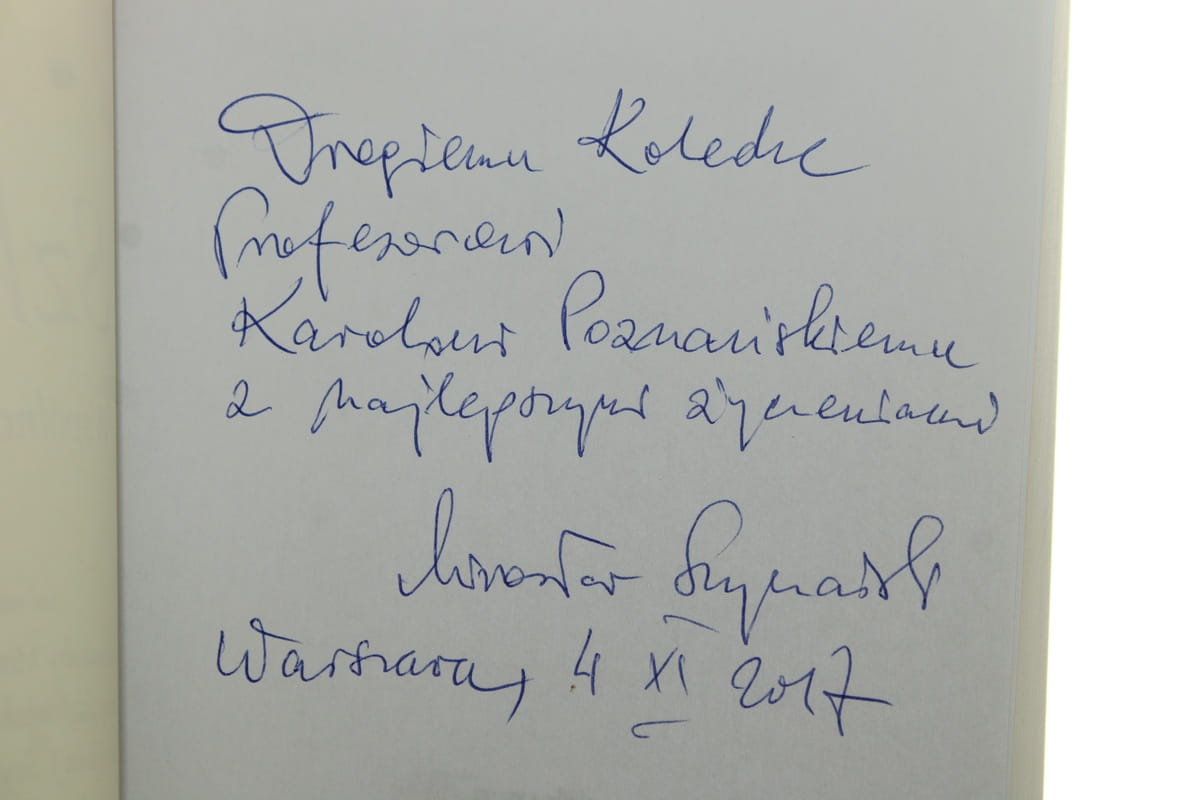 Drogiemu Koledze
Profesorowi
Karolowi Poznańskiemu
z najlepszymi życzeniami
Mirosław Szymański
Warszawa, 4 XI 2017